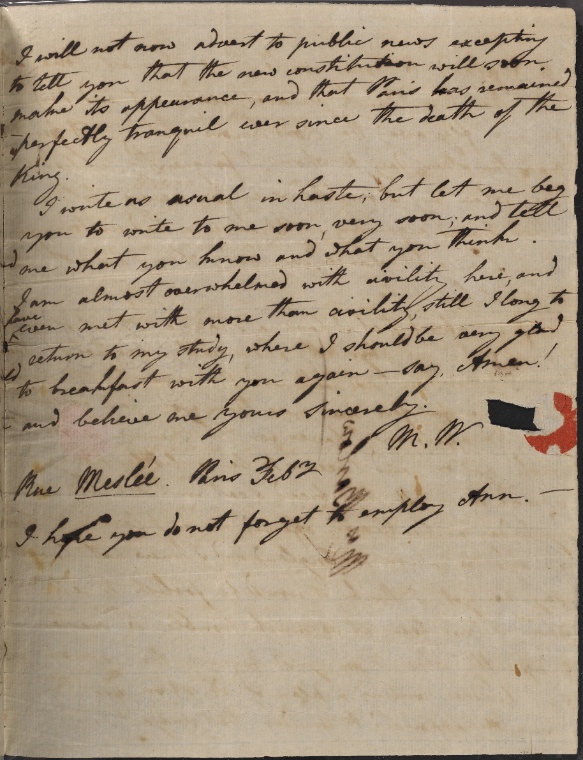 I will not now advert to public news excepting
to tell you that the new constitution will soon
make its appearance, and that Paris has remained
perfectly tranquil ever since the death of the
King.
I write as usual in haste; but let me beg
you to write to me soon, very soon; and tell
me what you know and what you think.
I am almost overwhelmed with civility here, and
have even met with more than civility, still I long to
return to my study, where I should be very glad
to breakfast with you again — say, Amen!
and believe me yours sincerely.
M. W.
Rue Meslée. Paris Feby
I hope you do not forget to employ Ann. —